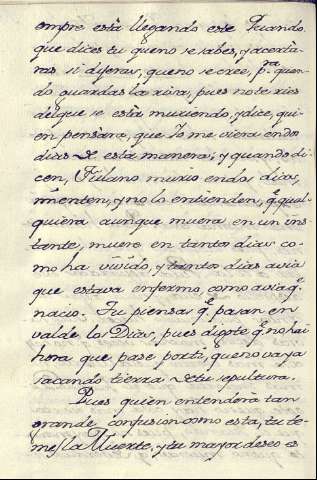 empre està llegando esse Quando,
que dices tu que no se sabes, y acerta-
ras si dijeras, que no se cree, pra. quan-
do guardas la rixa, pues note ries
del que se està muriendo, y dice, qui-
en pensàra, que Yo me viera en dos
dias de esta manera; y quando di-
cen, Fulano murio en dos dias,
mienten, y no lo entienden, q̃ qual-
quiera aunque muera en un ins-
tante, muere en tantos dias co-
mo ha vivido, y tantos dias avia
que estava enfermo, como avia q̃
nacio. Tu piensas q̃ pasan en
valde los Dias, pues digote q̃ no hai
hora que pase por ti, que no vaya
sacando tierra de tu sepultura.
Pues quien entenderà tan
grande confusion como esta, tu te-
mes la Muerte, y tu mayor deseo es